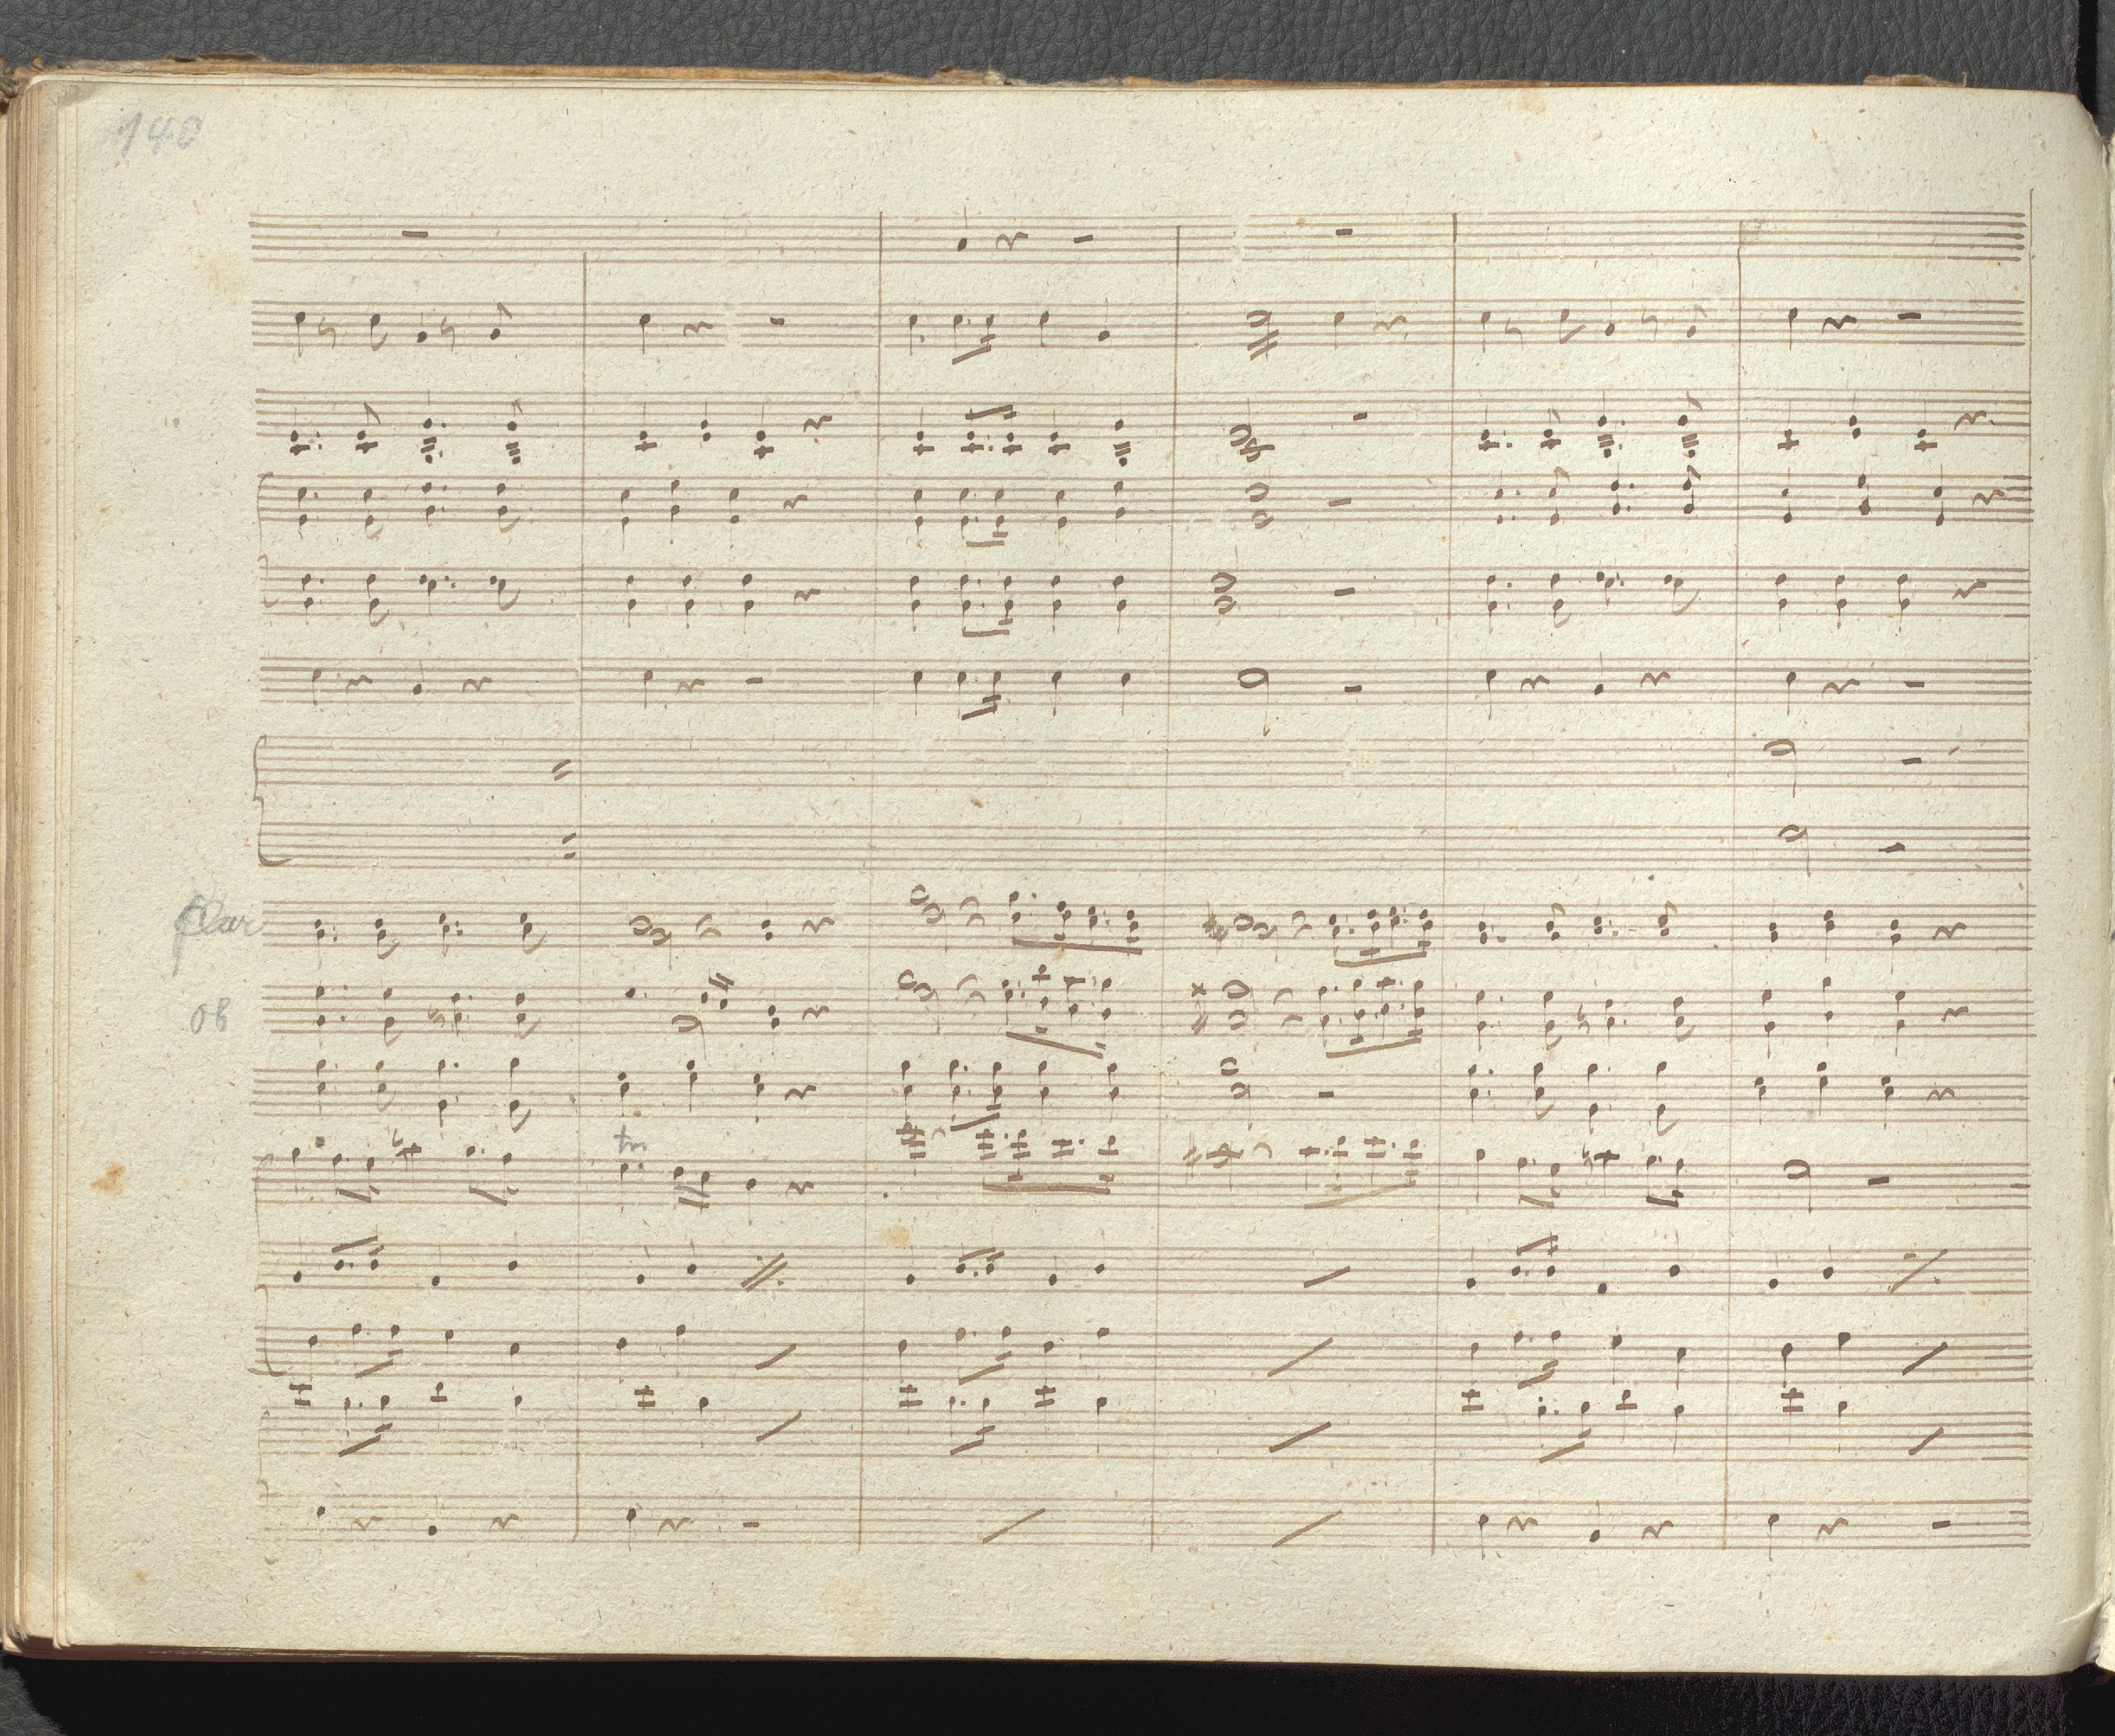 140
Clar
ob
tr